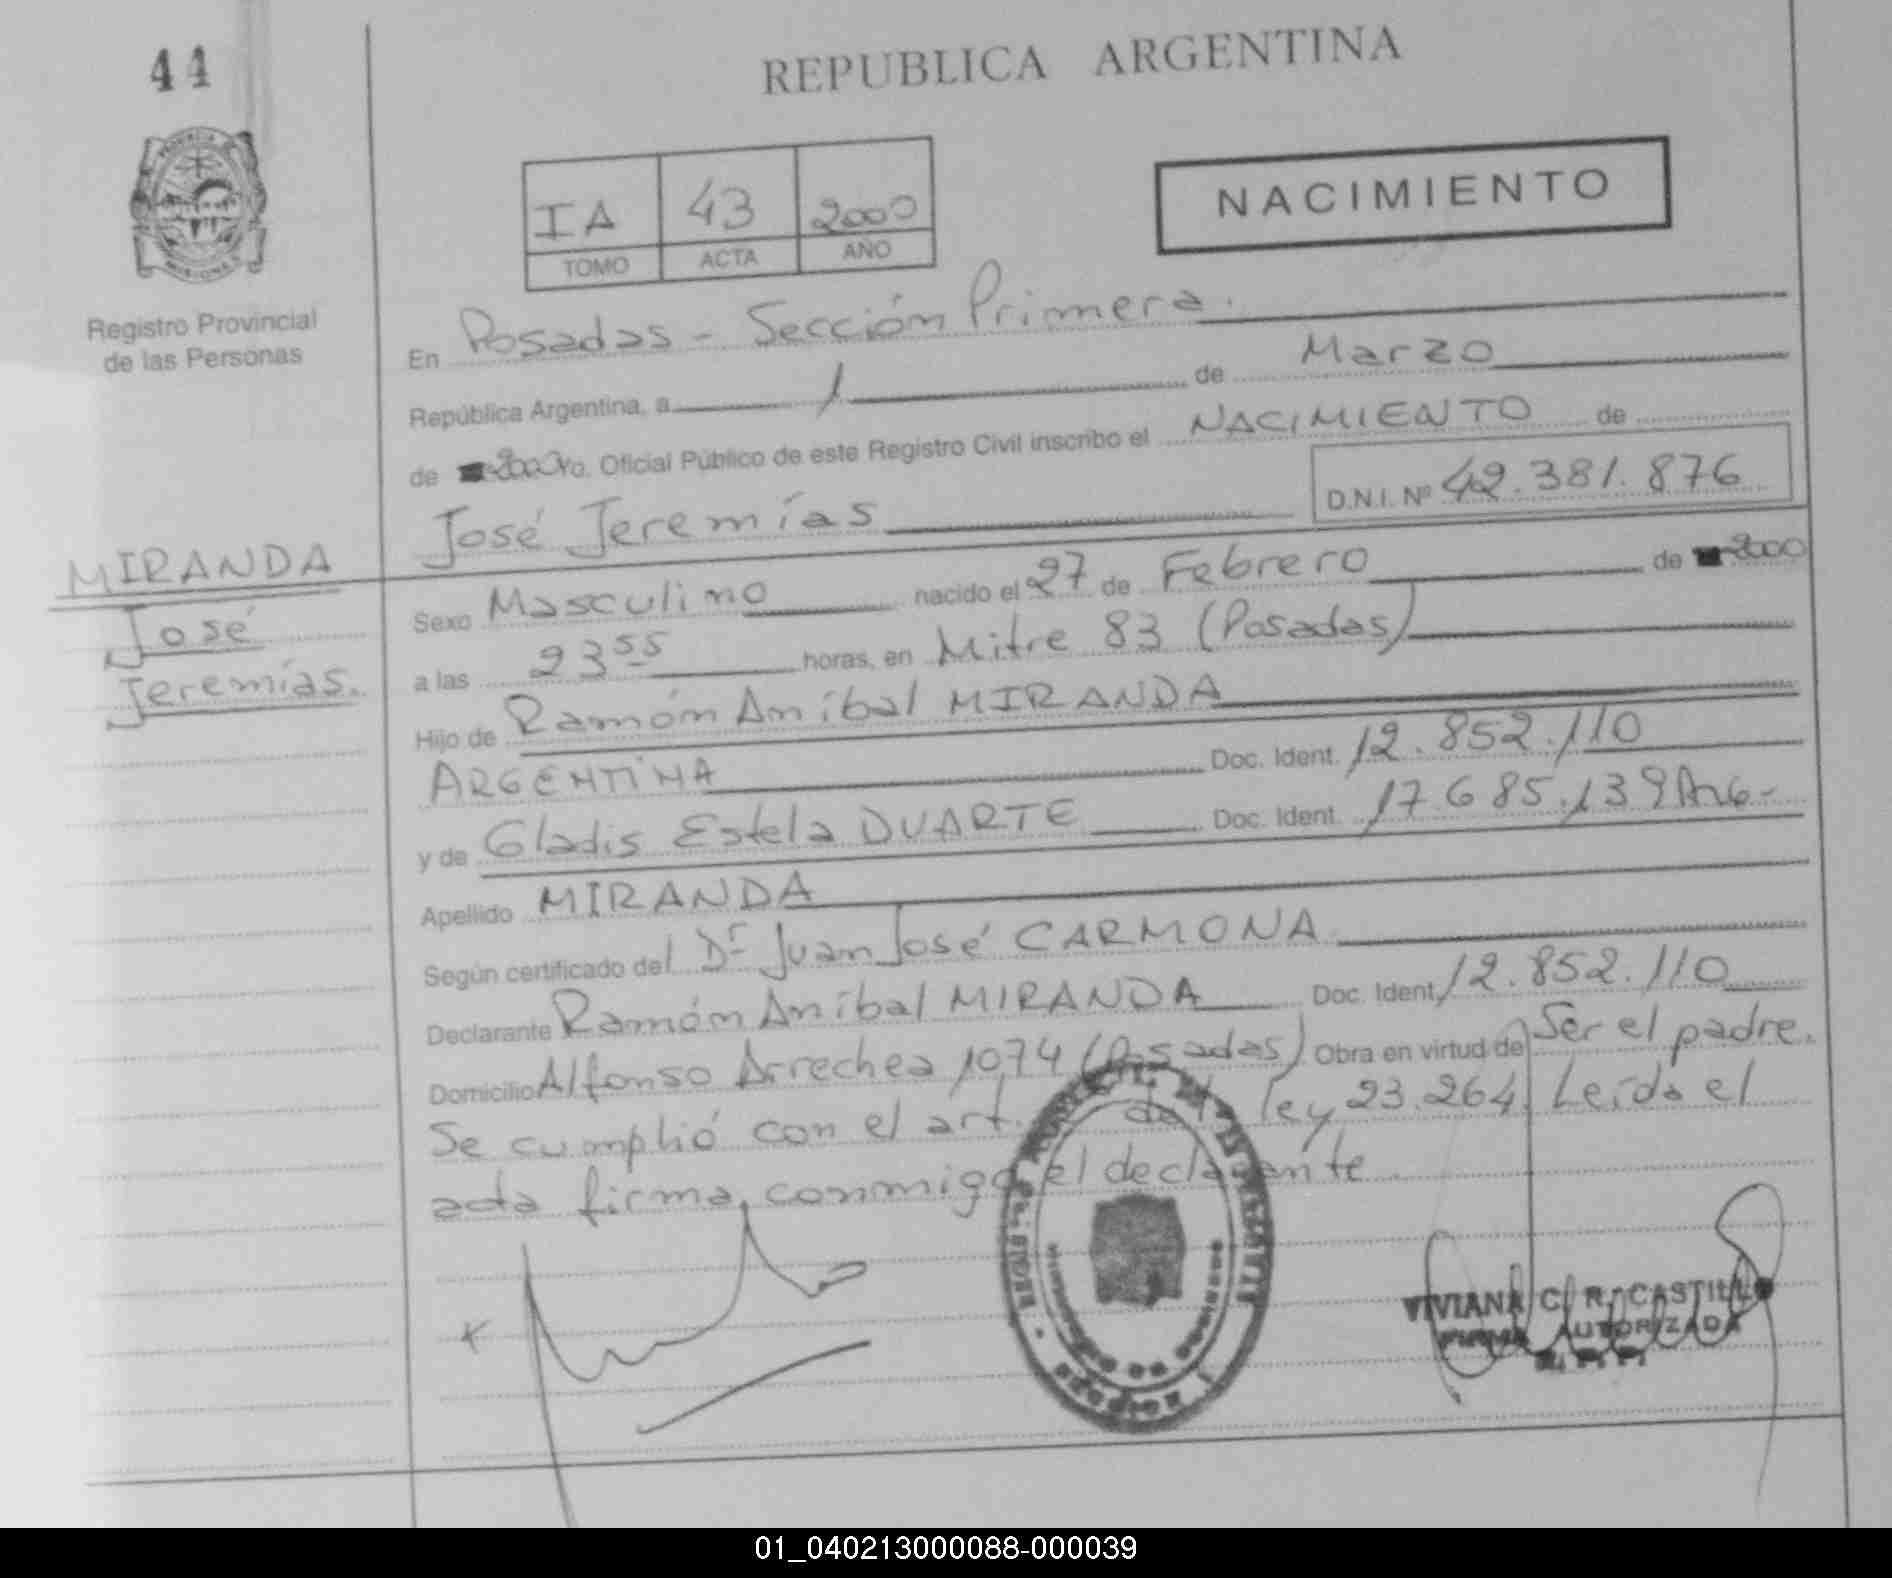 44
REPUBLICA ARGENTINA
NACIMIENTO
IA 43 2000
TOMO ACTA AÑO
Registro Provincial
de las Personas
En Posadas - Sección Primera.
República Argentina, a 1 de Marzo
de 2000 yo, Oficial Público de este Registro Civil inscribo el NACIMIENTO de
D.N.I. Nº 42.381.876
José Jeremías
MIRANDA
José
Jeremías.
Sexo Masculino nacido el 27 de Febrero de 2000
a las 23 55 horas, en Mitre 83 (Posadas)
Hijo de Ramón Aníbal MIRANDA
ARGENTINA Doc. Ident. 12.852.110
y de Gladis Estela DUARTE Doc. Ident. 17.685.139 ARG-
Apellido MIRANDA
Según certificado del Dr Juan José CARMONA
Declarante Ramón Aníbal MIRANDA Doc. Ident. 12.852.110
Domicilio Alfonso Arrechea 1074 (Posadas) Obra en virtud de Ser el padre.
Se cumplió con el art. de la ley 23.264. Leída el
acta firma conmigo el declarante
VIVIANA C. R. CASTILLO
FIRMA AUTORIZADA
01_040213000088-000039